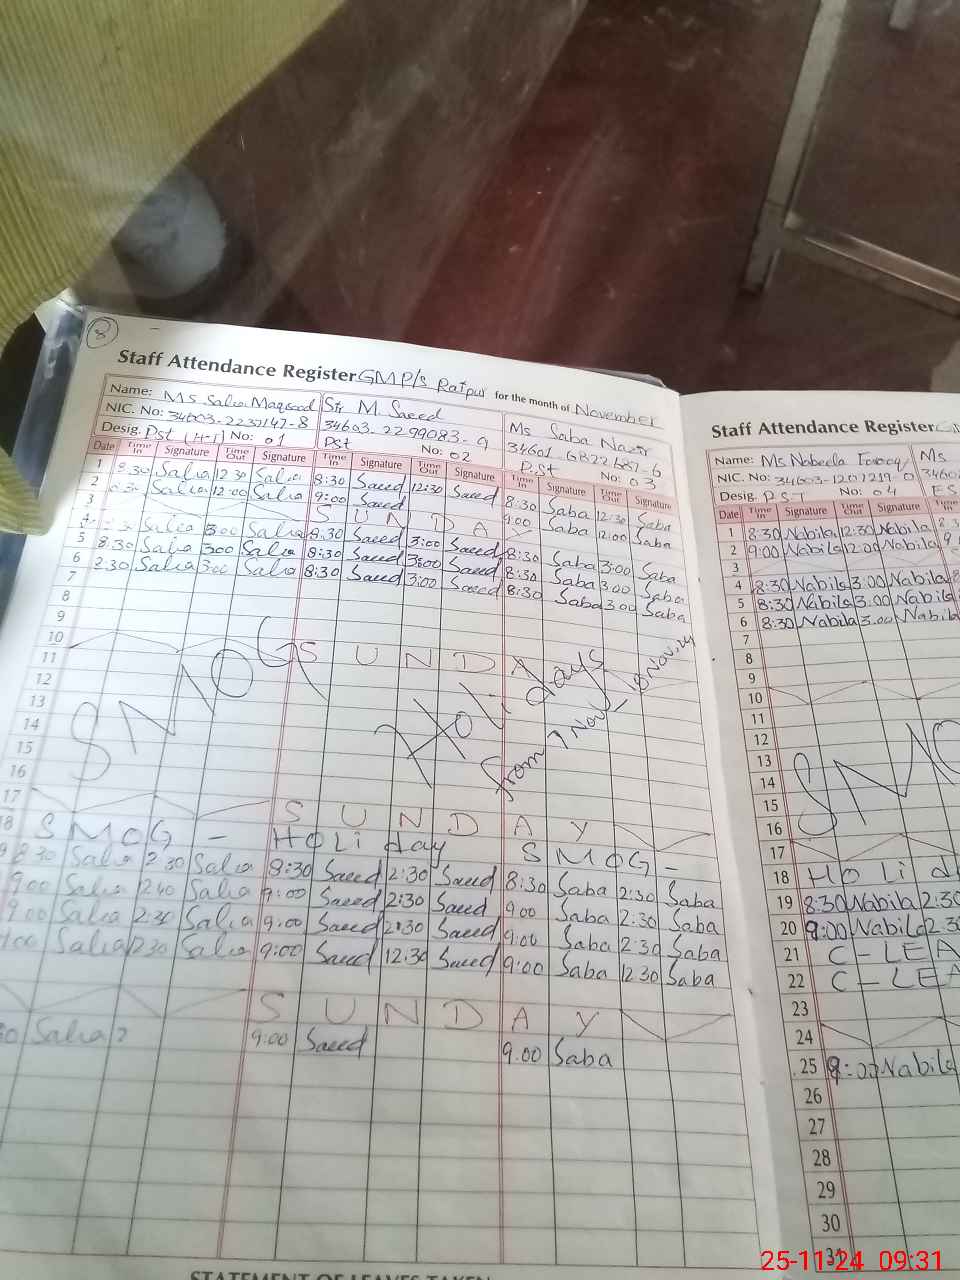 8
Staff Attendance Register GMP/s Ratpur for the month of November
Name: Ms Salia Maqsood Sir M. Saeed Ms Saba Nazir
NIC. No: 34603-2237147-8 34603-2299083-9 34601-6822687-6
Desig. Pst No: 01 Pst No: 02 Pst No: 03
Date Time In Signature Time Out Signature Time In Signature Time Out Signature Time In Signature Time Out Signature
1 8.30 Salia 12 30 Salia 8:30 Saeed 12:30 Saeed 8:30 Saba 12:30 Saba
2 8.30 Salia 12:00 Salia 9:00 Saeed 9:00 Saba 12:00 Saba
3 SUNDAY
4 Salia 3:00 Salia 8:30 Saeed 3:00 Saeed 8:30 Saba 3:00 Saba
5 8.30 Salia 3:00 Salia 8:30 Saeed 3:00 Saeed 8:30 Saba 3:00 Saba
6 8.30 Salia 3:00 Salia 8:30 Saeed 3:00 Saeed 8:30 Saba 3:00 Saba
7
8
9
10 SUNDAY
11
12
13
14
15
16
SMOG Holidays
from 7 Nov, 18 Nov, 24
17 SUNDAY
18 SMOG - Holiday SMOG -
8 30 Salia 2 30 Salia 8:30 Saeed 2:30 Saeed 8:30 Saba 2:30 Saba
9.00 Salia Salia 9:00 Saeed 2:30 Saeed 9:00 Saba 2:30 Saba
9.00 Salia 2:30 Salia 9:00 Saeed 2:30 Saeed 9:00 Saba 2:30 Saba
Salia 12 30 Salia 9:00 Saeed 12:30 Saeed 9:00 Saba 12 30 Saba
SUNDAY
Salia 9:00 Saeed 9.00 Saba
STATEMENT OF LEAVES TAKEN
Staff Attendance Register
Name: Ms Nabeela Farooq Ms
NIC. No: 34603-1207219-0 3460
Desig. PST No: 04 ES
Date Time In Signature Time Out Signature Time In
1 8:30 Nabila 12:30 Nabila
2 9:00 Nabila 12:00 Nabila
3
4 8:30 Nabila 3.00 Nabila
5 8:30 Nabila 3.00 Nabila
6 8:30 Nabila 3.00 Nabila
7
8
9
10
11
12
13
14
15
16
SMO
17
18 Holi d
19 8:30 Nabila 2:30
20 9:00 Nabila 2.30
21 C-LEA
22 C-LEA
23
24
25 Nabila
26
27
28
29
30
31
25-11-24 09:31